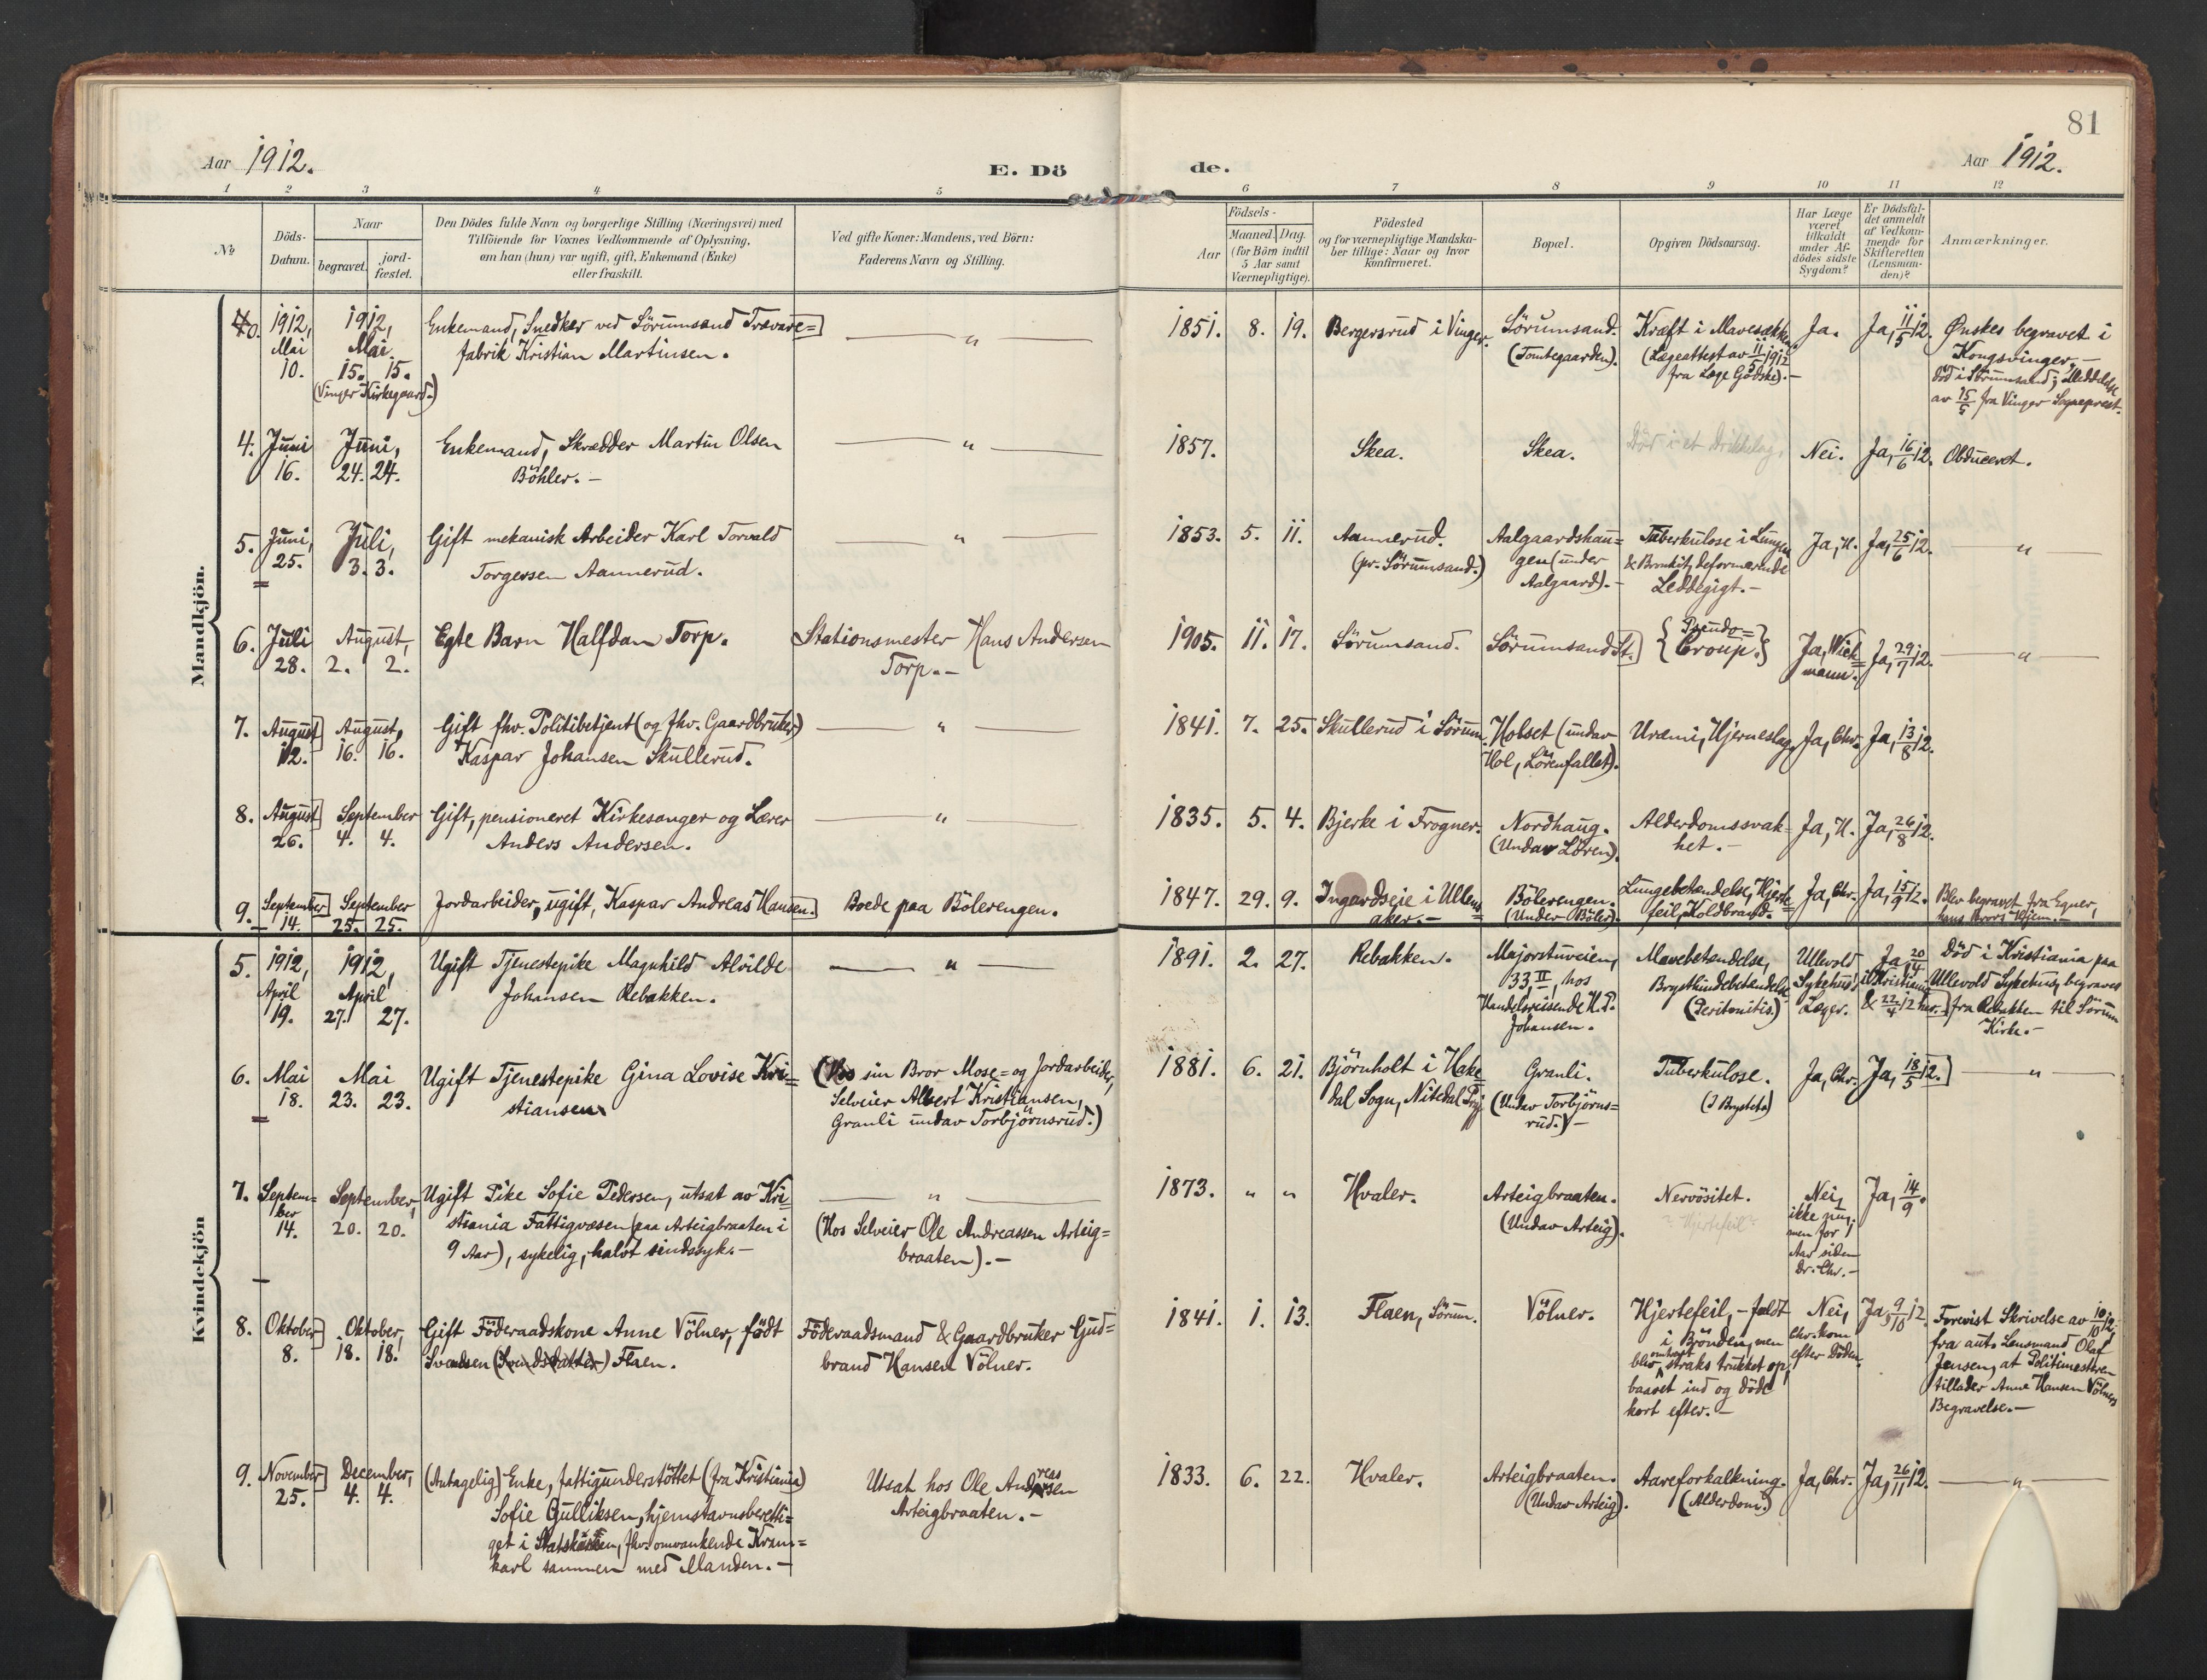 81
Aar 1912.
E. Dö
de.
Aar 1912.
1 2 3 4 5 6 7 8 9 10 11 12
No
Döds-
Datum.
Naar
begravet.
jord-
fæstet.
Den Dödes fulde Navn og borgerlige Stilling (Næringsvei) med
Tilföiende for Voxnes Vedkommende af Oplysning,
om han (hun) var ugift, gift, Enkemand (Enke)
eller fraskilt.
Ved gifte Koner: Mandens, ved Börn:
Faderens Navn og Stilling.
Födsels-
Aar
Maaned. Dag.
(for Börn indtil
5 Aar samt
Værnepligtige).
Födested
og for værnepligtige Mandska-
ber tillige: Naar og hvor
konfirmeret.
Bopæl.
Opgiven Dödsaarsag.
Har Læge
været
tilkaldt
under Af-
dödes sidste
Sygdom?
Er Dödsfal-
det anmeldt
af Vedkom-
mende for
Skifteretten
(Lensman-
den)?
Anmærkninger.
Mandkjön.
1912,
Mai
10.
1912,
Mai
15. 15.
(Vinger Kirkegaard.)
Enkemand, Snedker ved Sörumsand Trævare=
fabrik Kristian Martinsen.
— " —
1851. 8. 19.
Bergersrud i Vinger.
Sörumsand.
(Tomtegaarden).
Kræft i Mavesækken
(Lægeattest av 11/5 1912
fra Læge Gödske).—
Ja.
Ja, 11/5 12.
Ønskes begravet i
Kongsvinger,—
död i Sörumsand; Meddelelse
av 15/5 fra Vinger Sogneprest.
4.
Juni
16.
Juni,
24. 24.
Enkemand, Skrædder Martin Olsen
Böhler.—
— " —
1857.
Skea.
Skea.
Död i et Drikkelag.
Nei.
Ja, 16/6 12.
Obduceret.
5.
Juni,
25.
Juli,
3. 3.
Gift mekanisk Arbeider Karl Torvald
Torgersen Aannerud.
— " —
1853. 5. 11.
Aannerud.
(pr. Sörumsand.)
Aalgaardshau=
gen (under
Aalgaard).-
Tuberkulose i Lungen
& Bronkit, deformerende
Leddegigt.—
Ja, H.
Ja, 25/6 12.
"
6.
Juli
28.
August,
2. 2.
Egte Barn Halfdan Torp.
Stationsmester Hans Andersen
Torp.—
1905. 11. 17.
Sörumsand.
Sörumsand St.
{Pseudo=
Croup.}
Ja, Wiek=
mann.
Ja, 29/7 12.
— " —
7.
August
12.
August,
16. 16.
Gift fhv. Politibetjent (og fhv. Gaardbruker)
Kaspar Johansen Skullerud.
— " —
1841. 7. 25.
Skullerud i Sörum.
Holset (under
Hol, Lörenfallet).
Uræmi, Hjerneslag.
Ja, Chr.
Ja, 13/8 12.
8.
August
26.
September
4. 4.
Gift, pensioneret Kirkesanger og Lærer
Anders Andersen.
— " —
1835. 5. 4.
Bjerke i Frogner.
Nordhaug.
(Under Lören).
Alderdomssvak=
het.—
Ja, H.
Ja, 26/8 12.
9.
September
14.
September
25. 25.
Jordarbeider, ugift, Kaspar Andreas Hansen.
Boede paa Bölerengen.
1847. 29. 9.
Ingardseie i Ullens=
aker.—
Bölerengen.
(Under Böler).
Lungebetændelse, Hjerte=
feil, Koldbrand.
Ja, Chr.
Ja, 15/9 12.
Blev begravet fra Egner,
hans Brors Hjem.—
Kvindekjön
5.
1912,
April
19.
1912,
April
27. 27.
Ugift Tjenestepike Magnhild Alvilde
Johansen Rebakken.
— " —
1891. 2. 27.
Rebakken.
Majorstuveien,
33, II, hos
Handelsreisende H. P.
Johansen.
Mavebetændelse,
Brysthindebetændelse
(Peritonitis.)
Ullevold
Sykehus's
Læger.
Ja, 20/4
i Kristiania
& 22/4 12 her.
Död i Kristiania paa
Ullevold Sykehus, begraves
fra Rebakken til Sörum
Kirke.—
6.
Mai
18.
Mai
23. 23.
Ugift Tjenestepike Gina Lovise Kri=
stiansen
(Hos sin Bror Mose= og Jordarbeider,
Selveier Albert Kristiansen,
Granli under Torbjörnsrud.)
1881. 6. 21.
Björnholt i Hake=
dal Sogn, Nitedal Prgj.
Granli.
(Under Torbjörns=
rud.)—
Tuberkulose.
(I Brystet)
Ja, Chr.
Ja, 18/5 12.
— " —
7.
Septem=
ber
14.
September,
20. 20.
Ugift Pike Sofie Pedersen, utsat av Kri=
stiania Fattigvæsen (paa Arteigbraaten i
9 Aar), sykelig, halvt sindssyk.—
— " —
(Hos Selveier Ole Andreassen Arteig=
braaten).—
1873. " "
Hvaler.
Arteigbraaten.
(Under Arteig).
Nervösitet.
? Hjertefeil?
Nei,
ikke nu,
men for
Aar siden
Dr. Chr.—
Ja, 14/9.
8.
Oktober
8.
Oktober,
18. 18.
Gift Föderaadskone Anne Völner, född
Svendsen (Svendsdatter) Flaen.
Föderaadsmand & Gaardbruker Gud=
brand Hansen Völner.
1841. 1. 13.
Flaen, Sörum.
Völner.
Hjertefeil,— faldt
i Brönden, men
blev straks trukket op,
baaret ind og döde
kort efter.—
Nei,
Chr. kom
efter Döden.
Ja, 9/10 12.
Forevist Skrivelse av 10/10 12.
fra aut. Lensmand Olaf
Jensen, at Politimesteren
tillader Anne Hansen Völners
Begravelse.—
9.
November
25.
December,
4. 4.
(Antagelig) Enke, fattigunderstöttet (fra Kristiania)
Sofie Gulliksen, hjemstavnsberetti=
get i Statskassen, fhv. omvankende Kram=
karl sammen med Manden.—
Utsat hos Ole Andreassen
Arteigbraaten.—
1833. 6. 22.
Hvaler.
Arteigbraaten.
(Under Arteig).
Aareforkalkning.
(Alderdom.)
Ja, Chr.
Ja, 26/11 12.
— " —